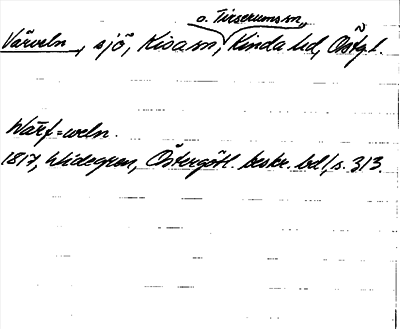 o. Tirserums sn,
Värveln, sjö, Kisa sn, Kinda hd, Östgl.
Wärf=weln.
1817, Widegren, Östergötl. beskr. bd 1, s. 313.